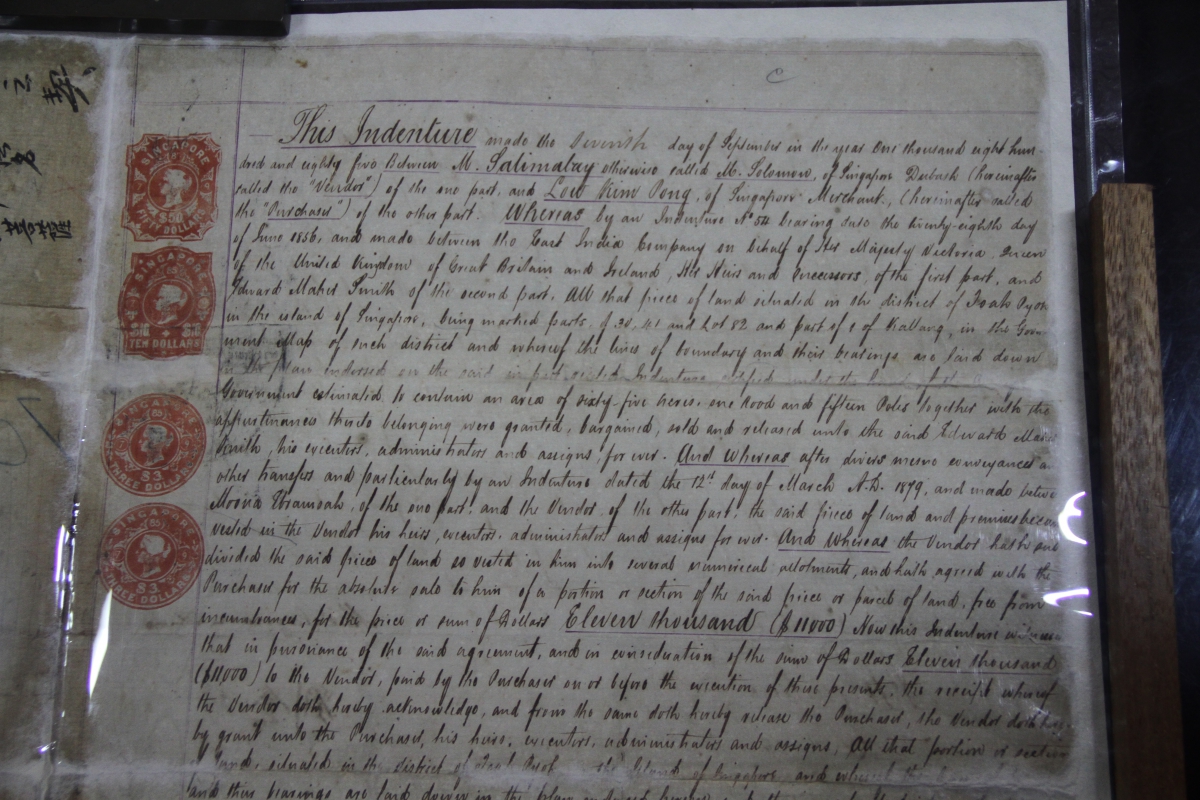 This Indenture made the Seventh day of September in the year One thousand eight hun-
dred and eighty five Between M. Salimalay otherwise called M. Solomon, of Singapore (hereinafter
called the "Vendor") of the one part, and Low Kim Pong, of Singapore Merchant, (hereinafter called
the "Purchaser") of the other part. Whereas by an Indenture No 54 bearing date the twenty-eighth day
of June 1856, and made between the East India Company on behalf of Her Majesty Victoria, Queen
of the United Kingdom of Great Britain and Ireland, Her Heirs and Successors, of the first part, and
Edward Smith of the second part. All that piece of land situated in the district of Toah Pyoh
in the island of Singapore, being marked parts, of 30, 41 and Lot 82 and part of of Kallang, in the Govern-
ment Map of such district and whereof the lines of boundary and their bearings are laid down
in the plan endorsed on the said in part recited Indenture under the hand of the
Government estimated to contain an area of sixty-five Acres, one Rood and fifteen Poles together with the
appurtenances thereto belonging were granted, bargained, sold and released unto the said Edward
Smith, his executors, administrators and assigns, for ever. And Whereas after divers mesne conveyances
other transfers and particularly by an Indenture dated the 12th day of March A.D. 1879, and made
of the one part, and the Vendor, of the other part, the said piece of land and premises
vested in the Vendor his heirs, executors, administrators and assigns for ever. And Whereas the Vendor hath sub
divided the said piece of land so vested in him into several numerical allotments, and hath agreed with the
Purchaser for the absolute sale to him of a portion or section of the said piece or parcel of land, free from
incumbrances, for the price or sum of Dollars Eleven thousand ($11000) Now this Indenture
that in pursuance of the said agreement, and in consideration of the sum of Dollars Eleven thousand
($11000) to the Vendor, paid by the Purchaser on or before the execution of these presents, the receipt whereof
the Vendor doth hereby acknowledge, and from the same doth hereby release the Purchaser, the Vendor doth
by grant unto the Purchaser, his heirs, executors, administrators and assigns, All that portion or section
of land, situated in the district of the Island of Singapore, and whereof the
and their bearings are laid down in the plan
SINGAPORE
$50
FIFTY DOLLARS
SINGAPORE
$10 $10
TEN DOLLARS
SINGAPORE
$3
THREE DOLLARS
SINGAPORE
$3
THREE DOLLARS